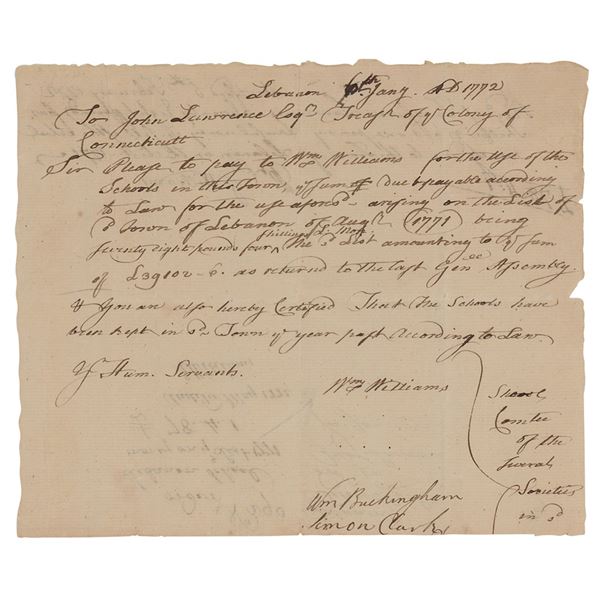 Lebanon 6th Jany. AD 1772
To John Lawrence Esqr Treasr of ye Colony of
Connecticutt
Sir Please to pay to Wm Williams for the Use of the
Schools in this Town, ye Sum due & payable according
to Law for the use aforesd arising on the List of
sd Town of Lebanon of Augt 1771 being
shillings & Mony
seventy eight pounds four ^ The sd List amounting to ye sum
of £39102-6. as returned to the last Genll Assembly.
& You are also hereby Certified That the Schools have
been kept in sd Town ye year past According to Law.
Yr Hum. Servants.
Wm Williams
Wm Buckingham
Simon Clark
School
Comtee
of the
several
Societies
in sd